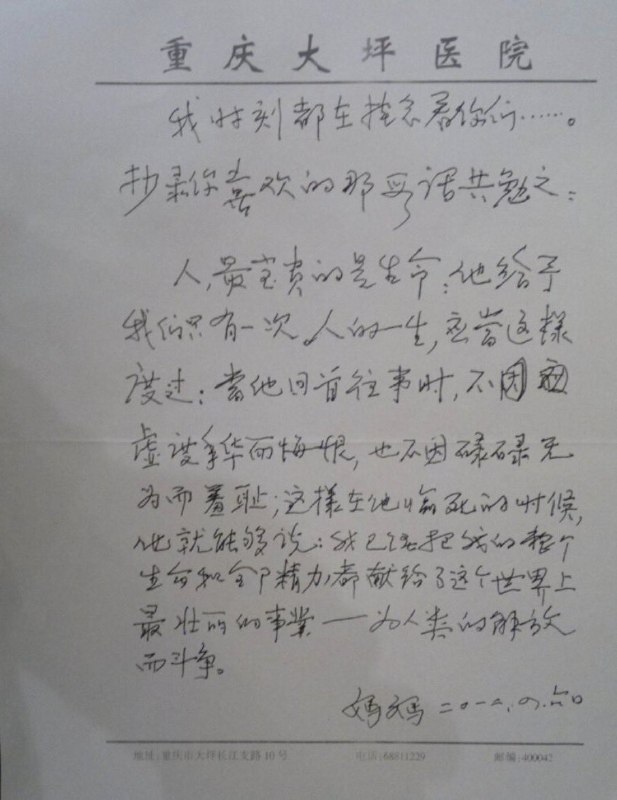 重庆大坪医院
我时刻都在挂念着你们……。
抄录你喜欢的那段话共勉之：
人，最宝贵的是生命；他给予
我们只有一次。人的一生，应当这樣
度过：當他回首往事时，不因
虚度年华而悔恨，也不因碌碌无
为而羞耻；这樣在他临死的时候，
他就能够说：我已经把我的整个
生命和全部精力都献给了这个世界上
最壮丽的事業——为人类的解放
而斗争。
媽媽 二〇一二.
地址：重庆市大坪长江支路10号 电话：68811229 邮编：400042